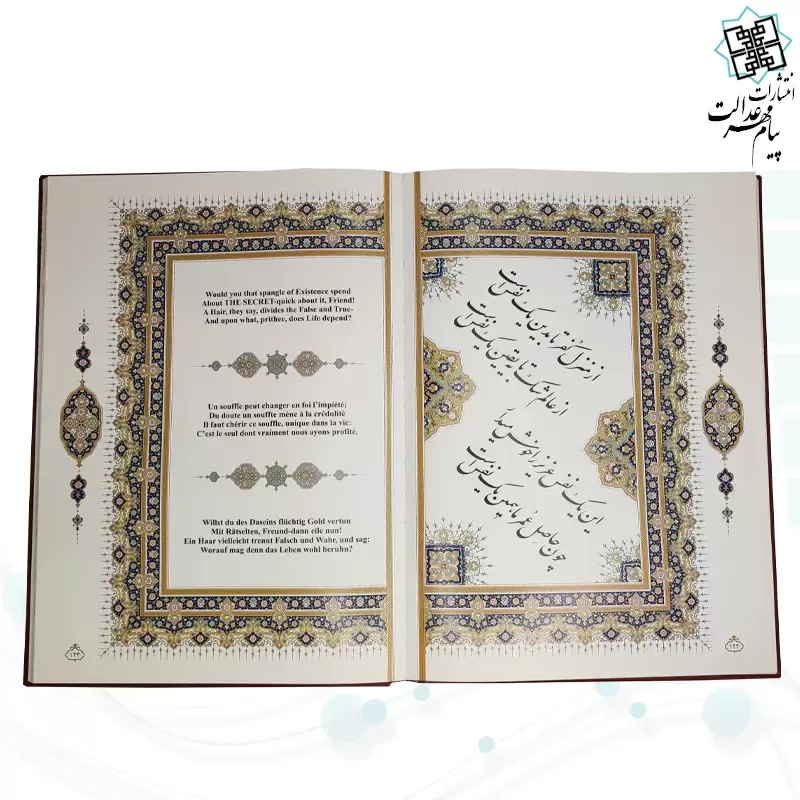 انتشارات
پیام مهر عدالت
از منزل کفر تا به دین یک نفس است
از عالم شک تا به یقین یک نفس است
این یک نفس عزیز را خوش میدار
چون حاصل عمر ما همین یک نفس است
۱۲۲
Would you that spangle of Existence spend
About THE SECRET-quick about it, Friend!
A Hair, they say, divides the False and True-
And upon what, prithee, does Life depend?
Un souffle peut changer en foi l'impiété;
Du doute un souffte mène à la crédulité
Il faut chérir ce souffle, unique dans la vie:
C'est le seul dont vraiment nous ayons profité.
Willst du des Daseins flüchtig Gold vertun
Mit Rätselten, Freund-dann eile nun!
Ein Haar vielleicht trennt Falsch und Wahr, und sag:
Worauf mag denn das Leben wohl beruhn?
۱۲۳